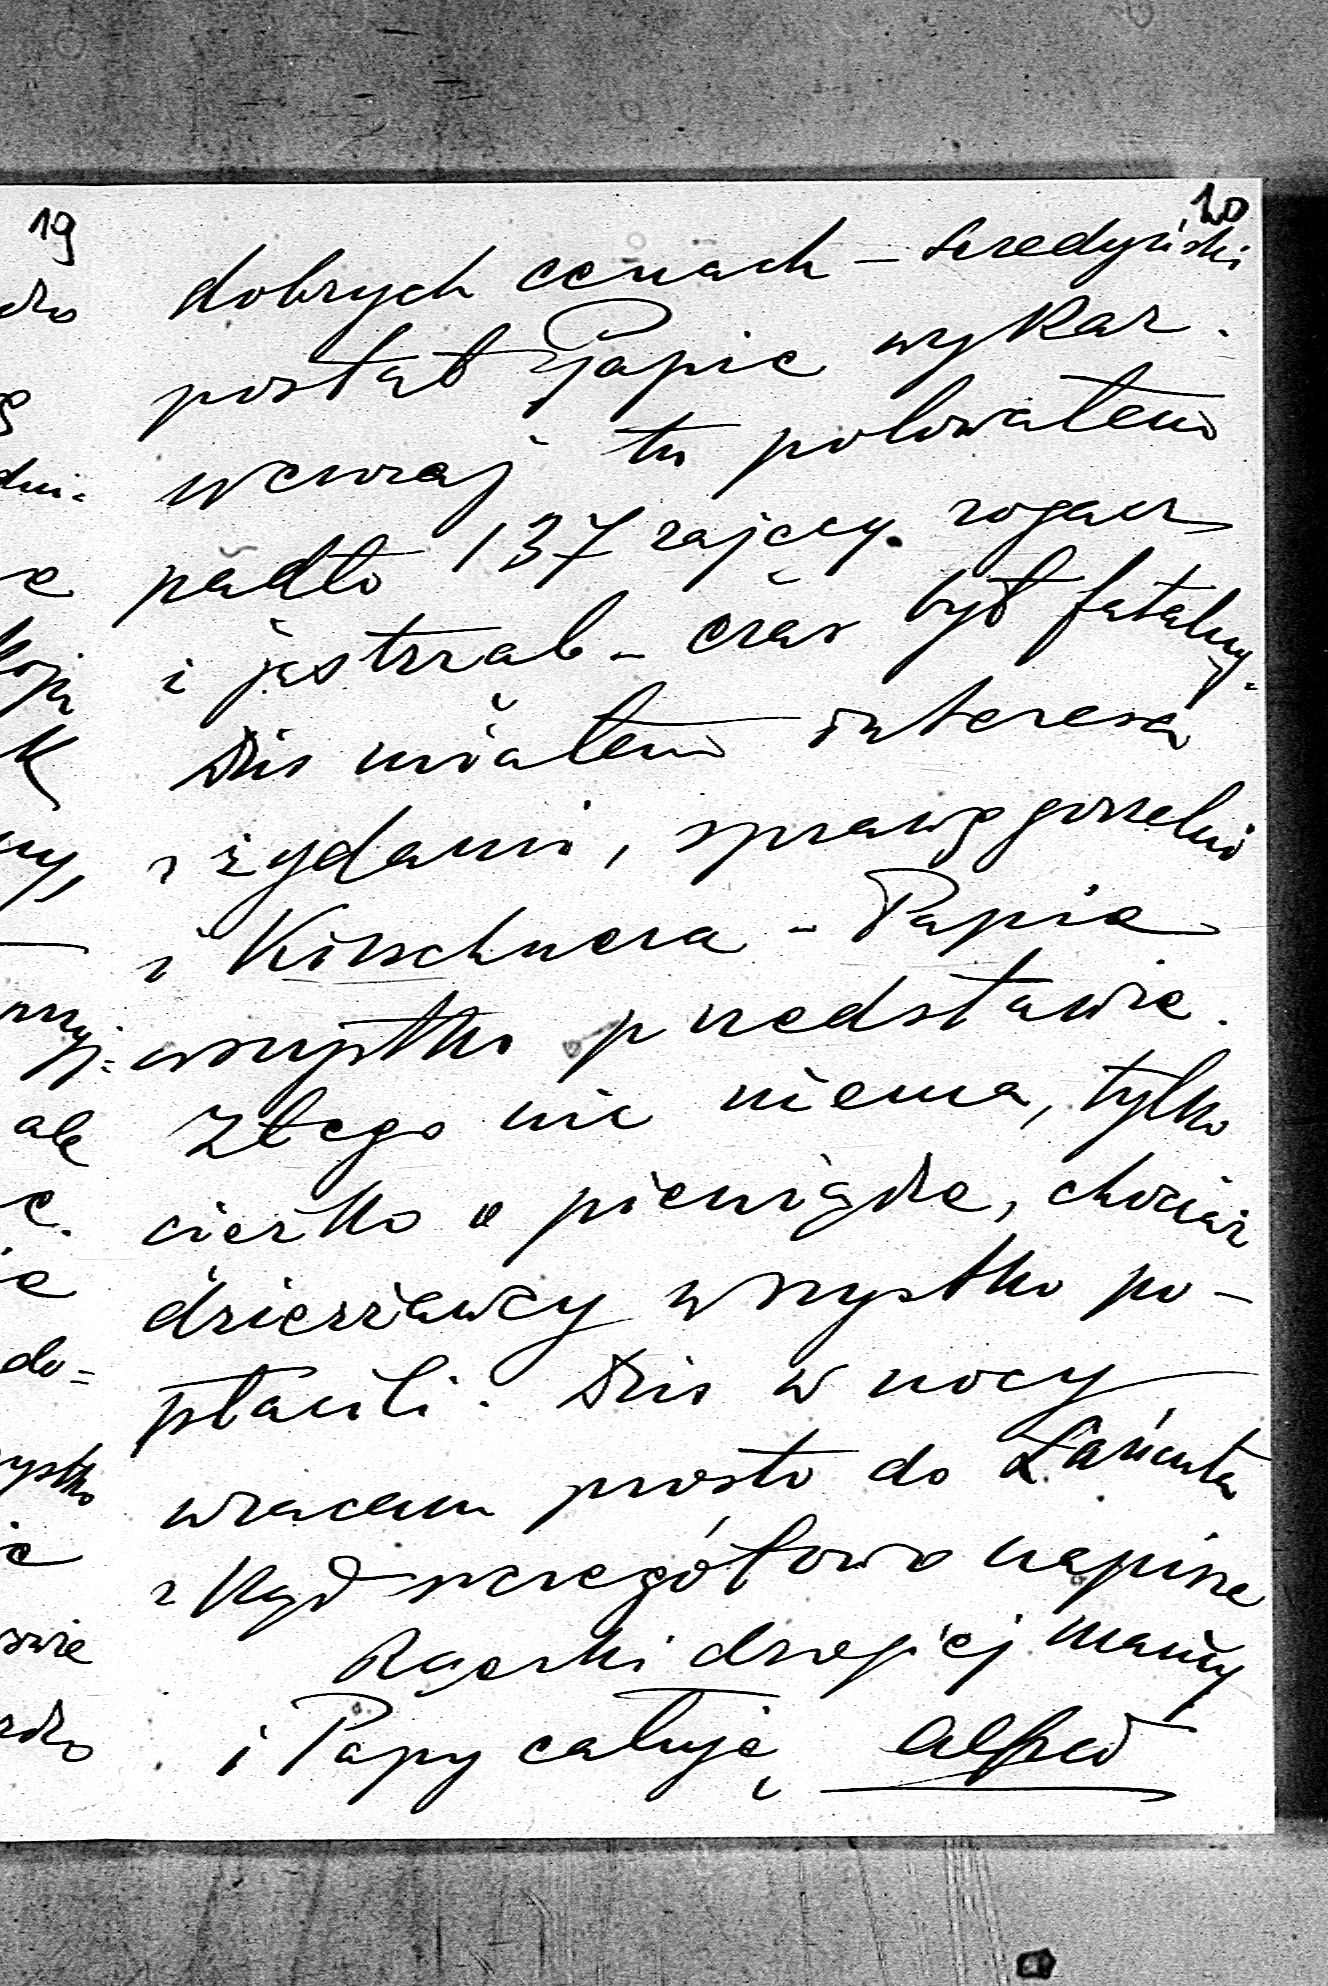 19
20
dobrych cenach – Szedyński
posłał Papie wykaz.
wczoraj tu polowałem
padło 137 zajęcy. rogacz
i jastrząb – czas był fatalny.
Dziś miałem interesa
z żydami, sprawę gorzelni
i Kirschnera – Papie
wszystko przedstawię.
Złego nic niema, tylko
ciężko o pieniądze, chociaż
dzierżawcy wszystko po-
płacili. Dziś w nocy
wracam prosto do Łańcuta
zkąd szczegółowo napiszę
Rączki drogiej Mamy
i Papy całuję Alfred
dzo
dni=
e
K
ny,
przyj=
ale
e.
do=
ie
zdo